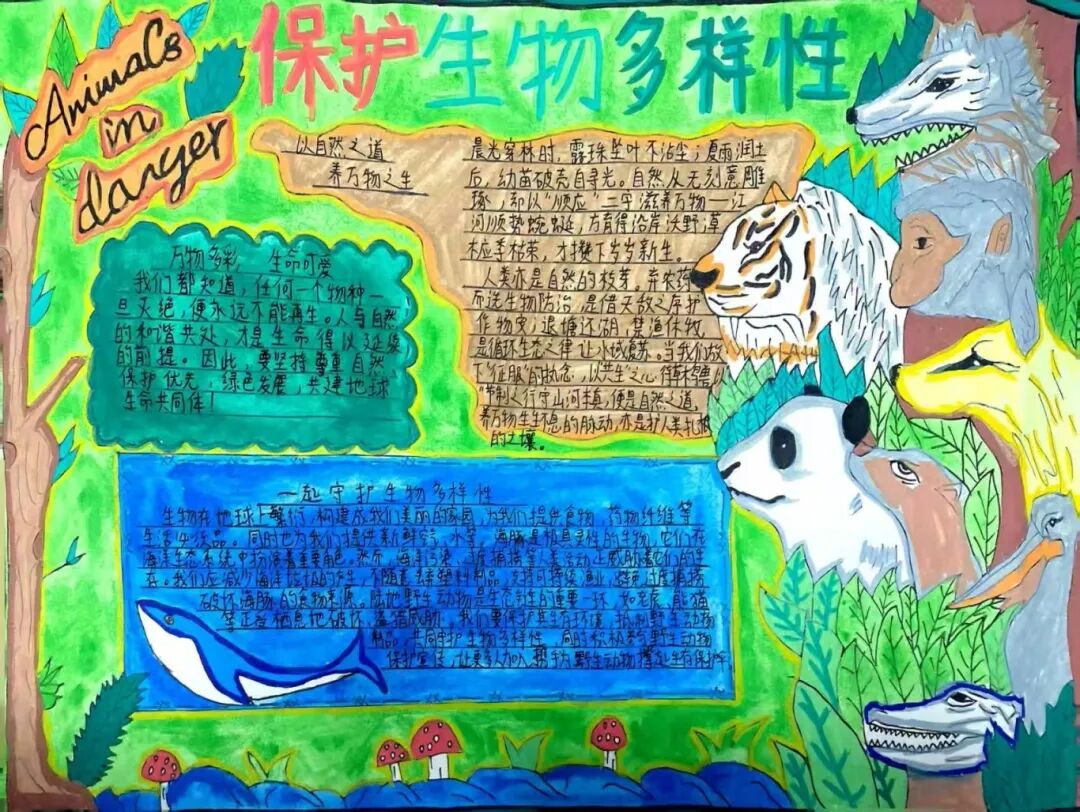 AnimaCs
in
danger
保护生物多样性
以自然之道
养万物之生
晨光穿林时，露珠坠叶不沾尘；夏雨润土
后，幼苗破壳自寻光。自然从无刻意雕
琢，却以“顺应”二字滋养万物——江
河顺势蜿蜒，方育得沿岸沃野；草
木应季枯荣，才攒下岁岁新生。
人类亦是自然的枝芽，弃农药
而选生物防治，是借天敌之序护
作物安；退塘还湖，禁渔休牧，
是循环生态之律让水域复苏。当我们放
下“征服”的执念，以“共生”之心待草木
之行守山河，便是自然之道，
养万物生生不息的脉动，亦是护人类扎根
的之壤。
万物多彩，生命可爱
我们都知道，任何一个物种一
旦灭绝，便永远不能再生。人与自然
的和谐共处，才是生命得以延续
的前提。因此，要坚持尊重自然
保护优先，绿色发展，共建地球
生命共同体！
一起守护生物多样性
生物在地球上繁衍，构建成我们美丽的家园，为我们提供食物，药物纤维等
生活必需品。同时也为我们提供新鲜空气，水等。海豚是极具灵性的生物，它们在
海洋生态系统中扮演着重要角色。然而，海洋污染、过度捕捞等人类活动正威胁着它们的生
存。我们应减少海洋垃圾的产生，不随意丢弃塑料制品，支持可持续渔业，过度捕捞
破坏海豚的食物来源。陆地野生动物是生态的重要一环，如老虎、熊猫
等正受栖息地破坏、盗猎威胁。我们要保护其生存环境，抵制野生动物
制品，共同守护生物多样性，同时积极参与野生动物
保护宣传，让更多人加入，为野生动物撑起生存保护伞。